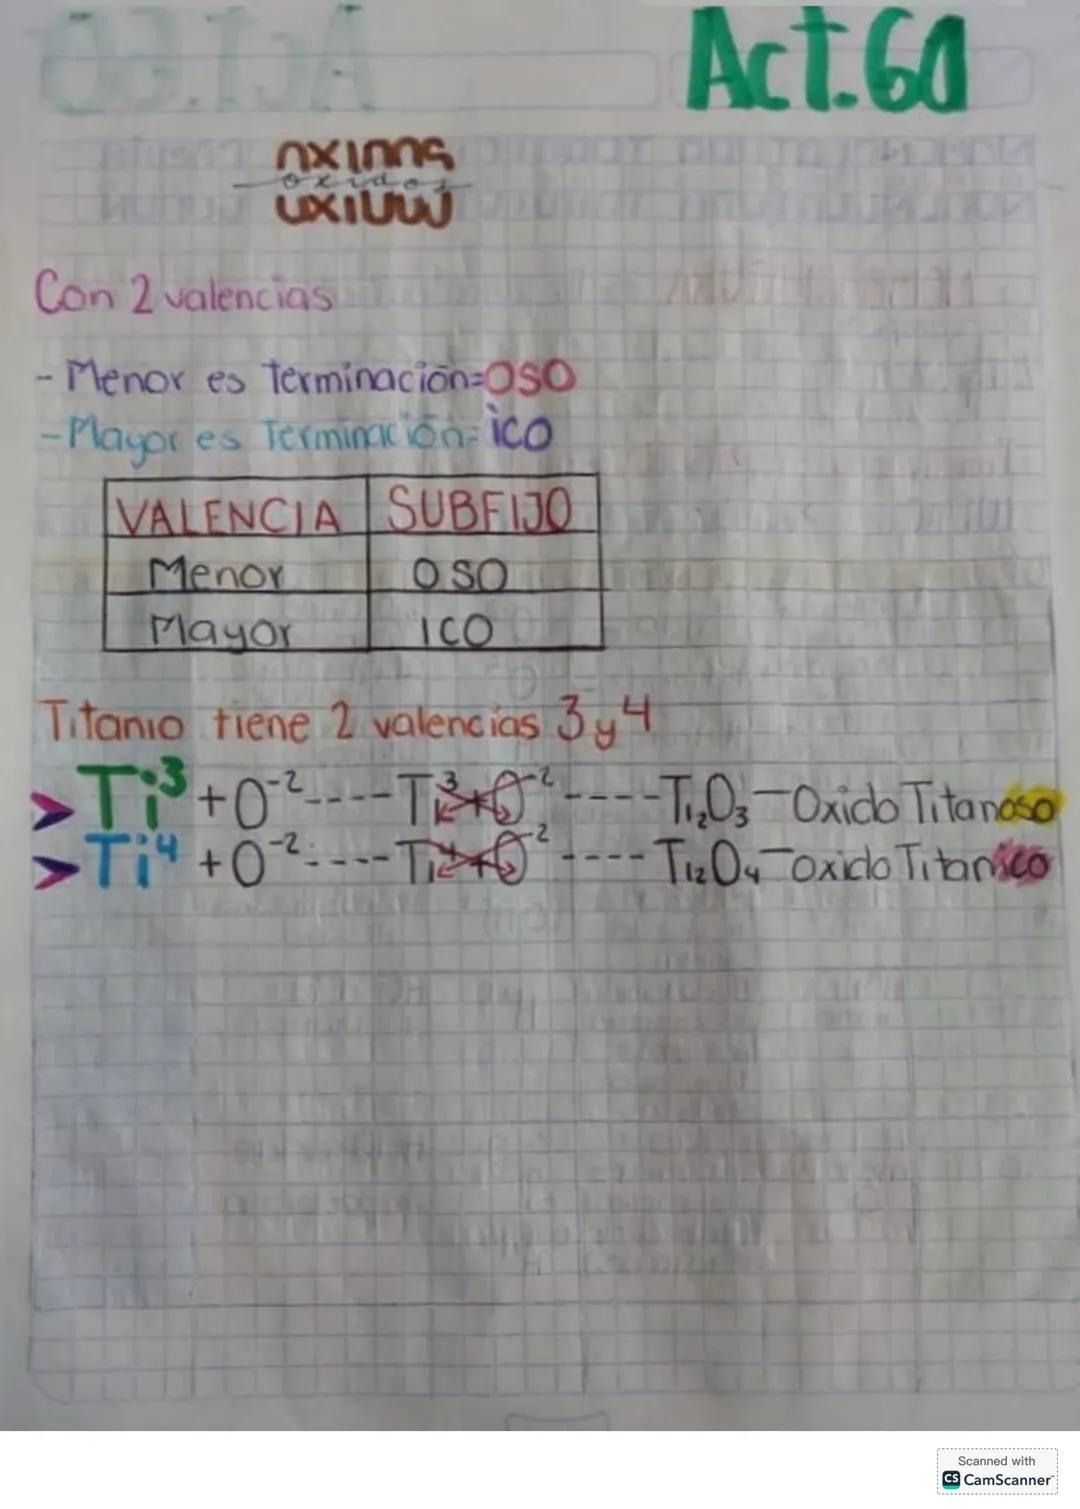 Act.60
oxidos
Con 2 valencias
- Menor es terminación=OSO
- Mayor es Terminación= ico
VALENCIA SUBFIJO
Menor OSO
Mayor ICO
Titanio tiene 2 valencias 3 y 4
Ti³ + O⁻² ---- Ti³ + O⁻² ---- Ti₂O₃ — Oxido Titanoso
Ti⁴ + O⁻² ---- Ti⁴ + O⁻² ---- Ti₂O₄ — oxido Titanico
Scanned with
CS CamScanner